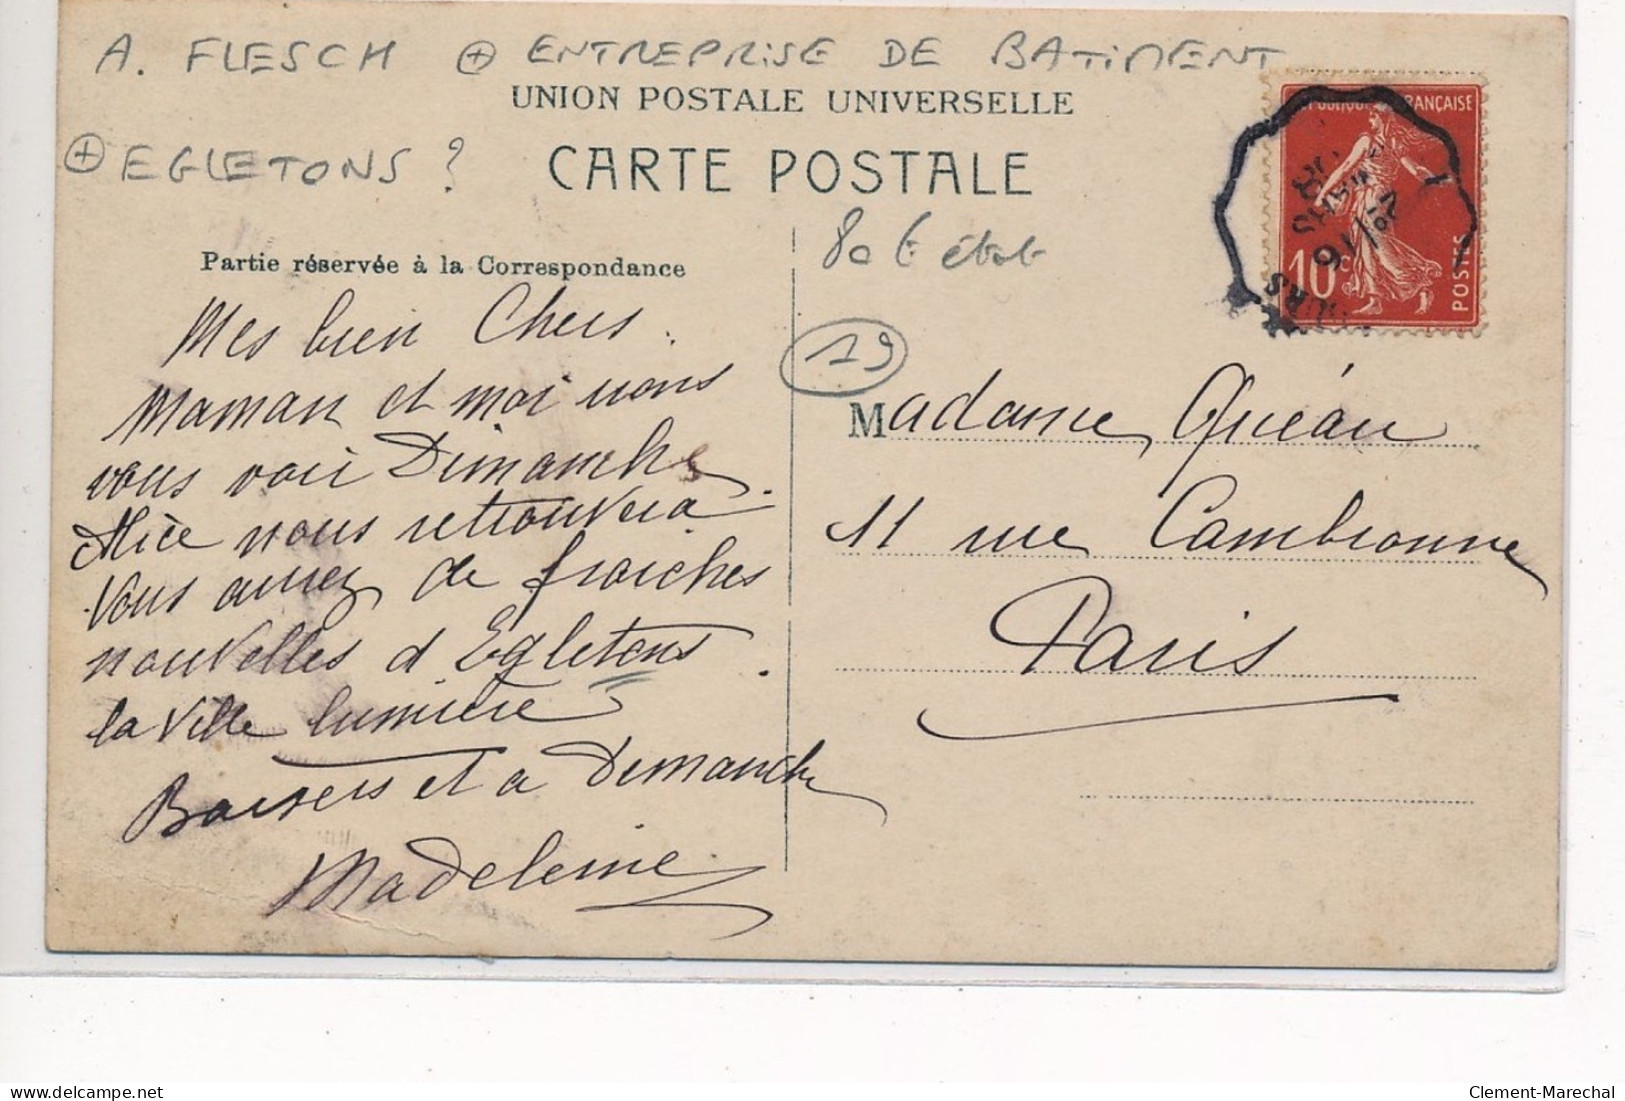 A. FLESCH + ENTREPRISE DE BATIMENT
UNION POSTALE UNIVERSELLE
+ EGLETONS ?
CARTE POSTALE
REPUBLIQUE FRANÇAISE
10 c
POSTES
80 € état
Partie réservée à la Correspondance
19
Mes bien Chers.
Maman et moi nous
vous voir Dimanche.
Alice nous retrouvera
Vous aurez de fraiches
nouvelles d'Egletons.
la Ville lumière
Baisers et a Dimanche
Madeleine
Madame Quéau
11 rue Cambronne
Paris
delcampe.net
Clement-Marechal